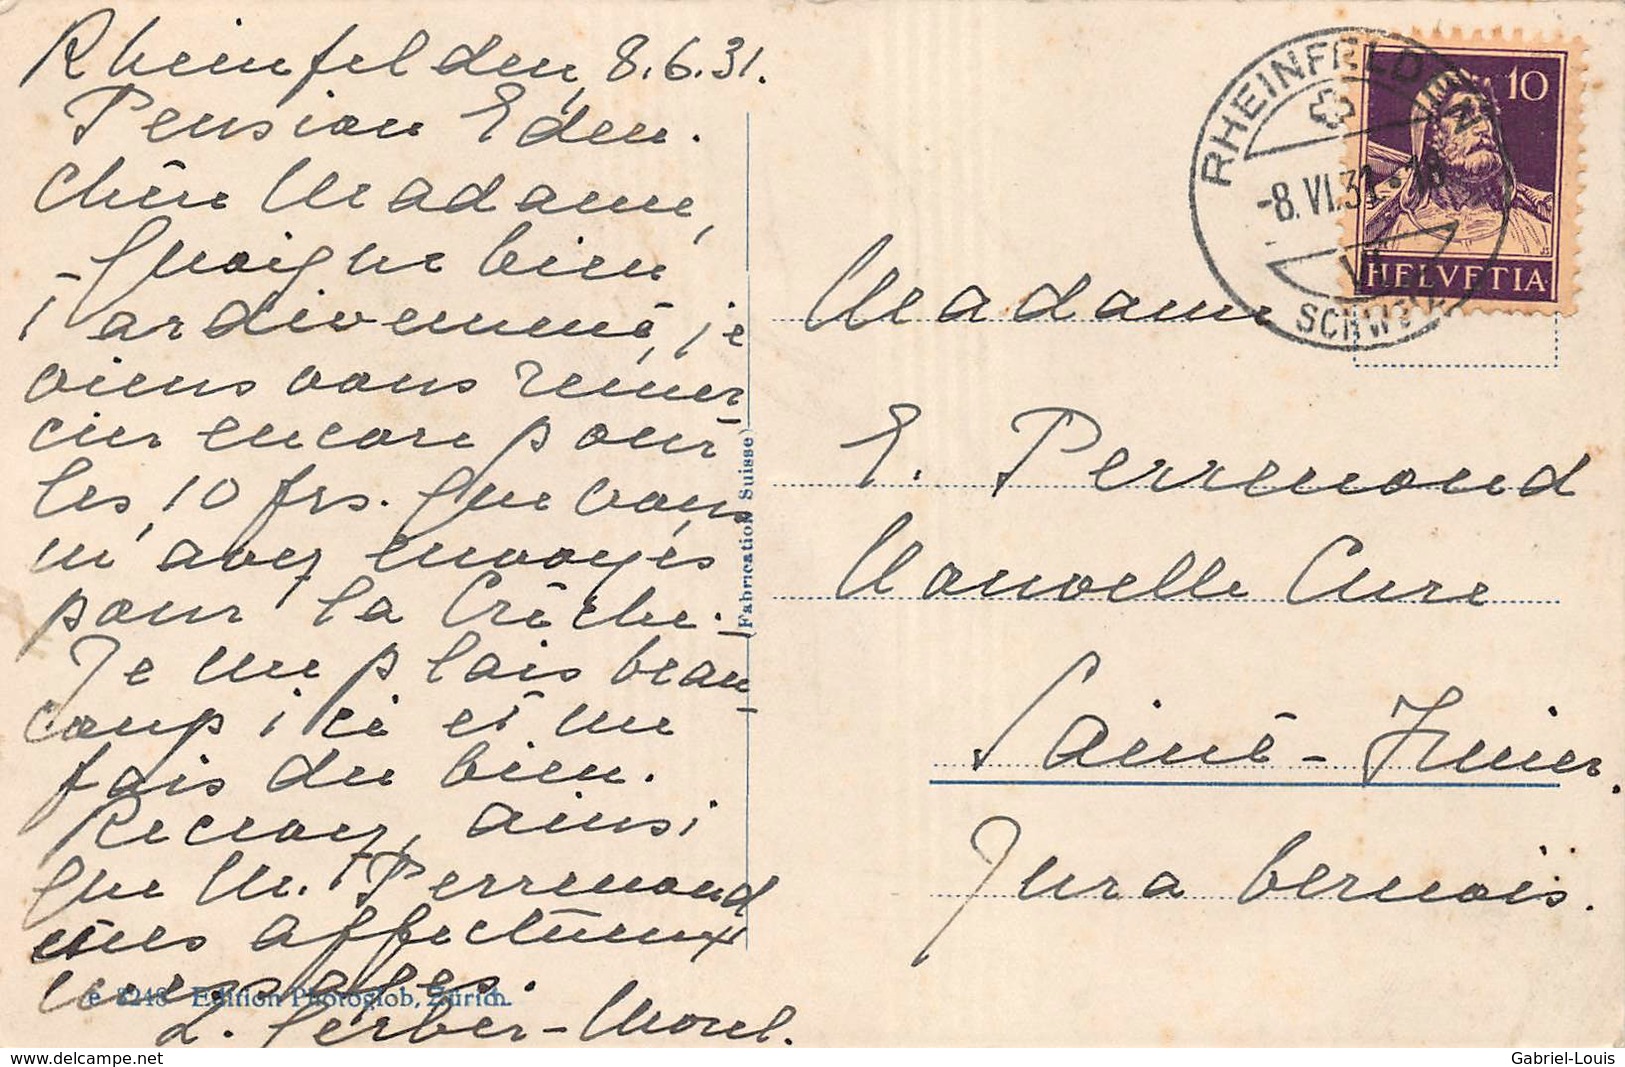 Rheinfelden, 8.6.31.
Pension Eden.
Chère Madame,
Quoique bien
tardivement, je
viens vous remer-
cier encore pour
les 10 frs. que vous
m'avez envoyés
pour la Crèche.
Je me plais beau-
coup ici et me
fais du bien.
Recevez, ainsi
que M. Perrenoud
mes affectueux
messages.
L. Gerber-Morel.
e 8248 Edition Photoglob, Zürich.
(Fabrication Suisse)
RHEINFELDEN
-8.VI.31.-18
VII
SCHWEIZ
10
HELVETIA
Madame
E. Perrenoud
Nouvelle Cure
Saint-Imier.
Jura bernois.
delcampe.net
Gabriel-Louis